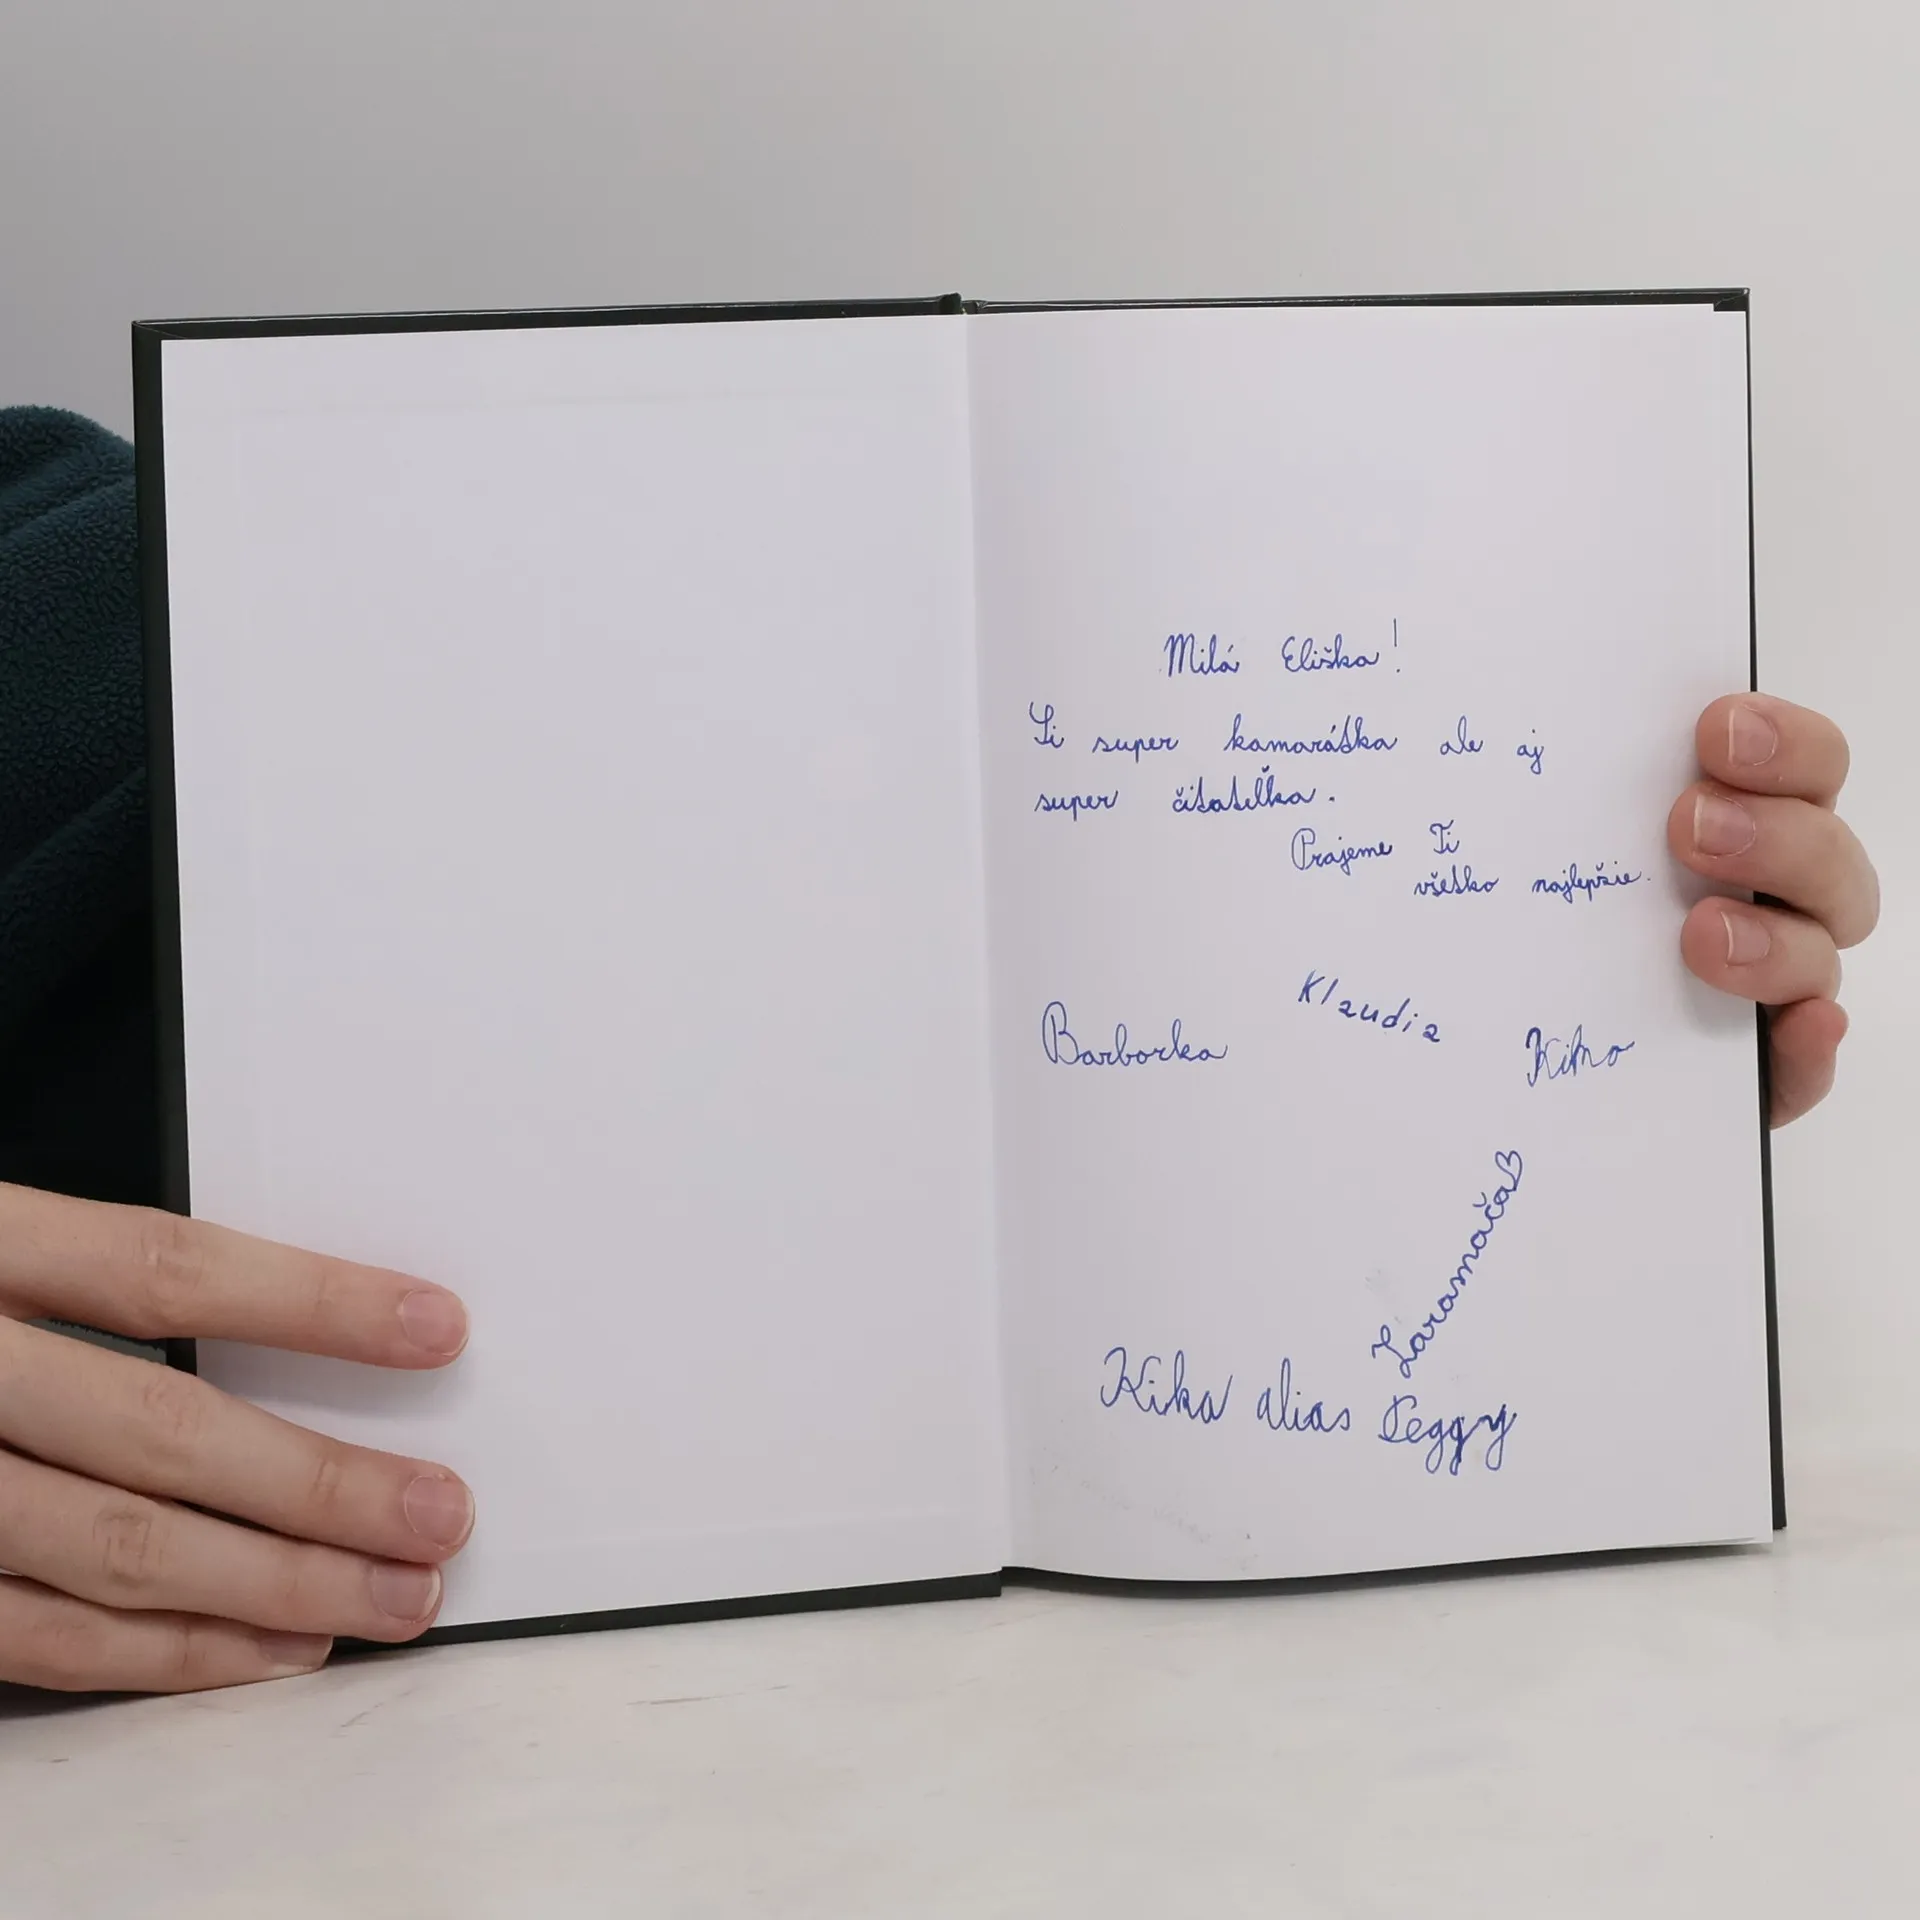 Milá Eliška!
Si super kamarátka ale aj
super čitateľka.
Prajeme Ti
všetko najlepšie.
Klaudia
Barborka
Kika alias Peggy